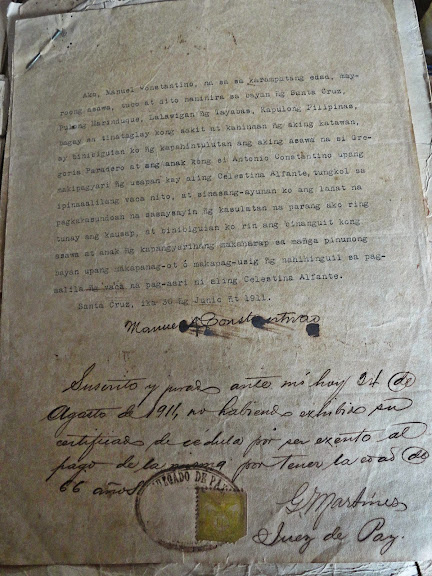 Ako, Manuel Constantino, na sa sa karampatang edad, may-
roong asawa, tubo at dito naninira sa bayan ng Santa Cruz,
Pulong Marinduque, Lalawigan ng Tayabas, Kapulong Pilipinas,
bagay sa tinataglay kong sakit at kahinaan ng aking katawan,
ay tinibigyan ko ng kapahintulutan ang aking asawa na si Gre-
goria Paradero at ang anak kong si Antonio Constantino upang
makipagyari ng usapan kay aling Celestina Alfante, tungkol sa
ipinaaalilang vaca nito, at sinasang-ayunan ko ang lahat na
pagkakasunduan sa sasaysayin ng kasulatan na parang ako ring
tunay ang kausap, at binibigyan ko rin ang binanguit kong
asawa at anak ng kapangyarihang makaharap sa mañga pinunong
bayan upang makapanag-ot ó makapag-usig ng nahihinguil sa pag-
aalila ng vaca na pag-aari ni aling Celestina Alfante.
Santa Cruz, ika 30 ng Junio ñt 1911.
Manuel Constantino
Suscrito y jurado ante mí hoy 24 de
Agosto de 1911, no habiendo exhibido su
certificado de cédula por ser exento al
pago de la misma por tener la edad de
66 años.
JUZGADO DE PAZ
G. Martínes
Juez de Paz.